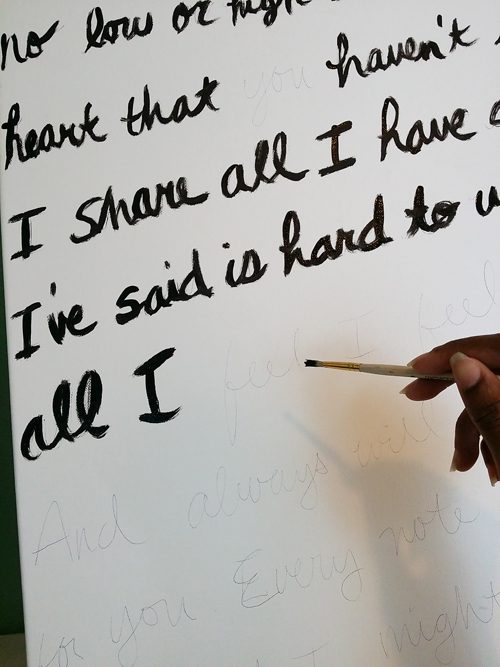 no low or high
heart that you haven't
I share all I have
I've said is hard to
all I feel I feel
And always will
for you Every note
I might